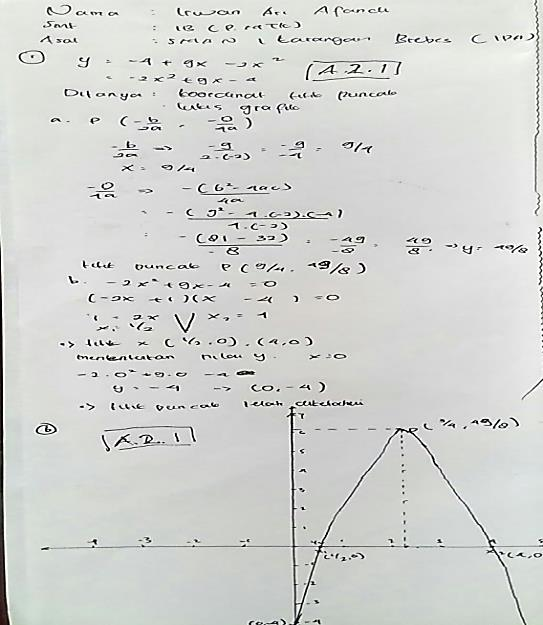 Nama : Irwan Ari Afandi
Smt : 1B (P. MTK)
Asal : SMAN 1 Larangan Brebes (IPA)
① y = -4 + 9x - 2x²
= -2x² + 9x - 4
A.2.1
Ditanya : koordinat titik puncak
lukis grafik
a. P (-b/2a , -D/4a)
-b/2a => -9/2.(-2) = -9/-4 = 9/4
x = 9/4
-D/4a => -(b² - 4ac)/4a
= -(9² - 4.(-2).(-4))/4.(-2)
= -(81 - 32)/-8 = -49/-8 = 49/8 => y = 49/8
titik puncak P (9/4, 49/8)
b. -2x² + 9x - 4 = 0
(-2x + 1)(x - 4) = 0
1 = 2x V x₂ = 4
x₁ = 1/2
=> titik x (1/2, 0), (4, 0)
menentukan nilai y. x = 0
-2.0² + 9.0 - 4
y = -4 -> (0, -4)
=> titik puncak telah diketahui
ⓑ A.2.1
Y
P (9/4, 49/8)
6
5
4
3
2
1
-4 -3 -2 -1
(1/2, 0)
(4, 0
-2
-3
(0, -4) -4